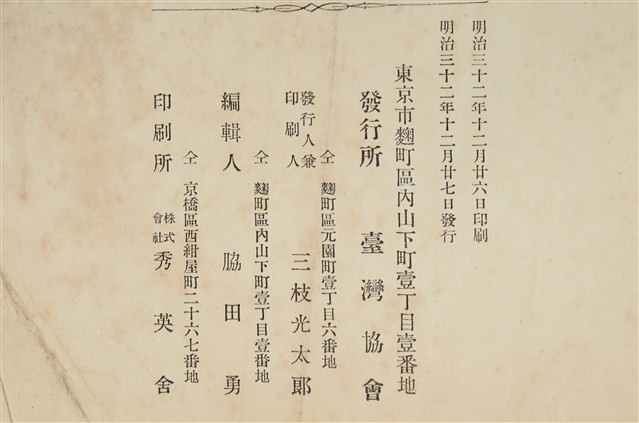 明治三十二年十二月廿六日印刷
明治三十二年十二月廿七日發行
東京市麴町區內山下町壹丁目壹番地
發行所 臺灣協會
仝 麴町區元園町壹丁目六番地
發行人兼印刷人 三枝光太郎
仝 麴町區內山下町壹丁目壹番地
編輯人 脇田勇
仝 京橋區西紺屋町二十六七番地
印刷所 株式會社 秀英舍